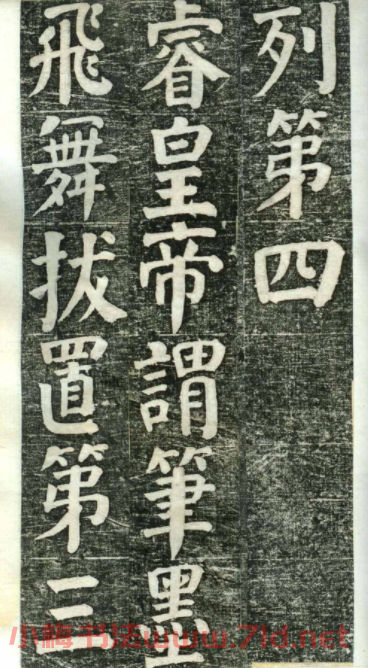 列第四
睿皇帝謂筆墨
飛舞拔置第三
小梅书法www.7ld.net